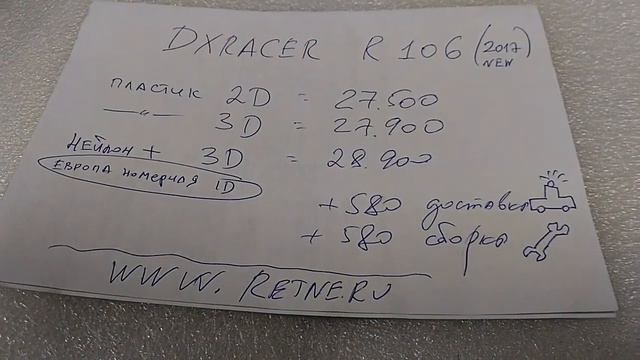 DXRACER R 106 (2017 NEW)
ПЛАСТИК 2D = 27.500
—"— 3D = 27.900
НЕЙЛОН + 3D = 28.900
ЕВРОПА НОМЕРНАЯ ID
+ 580 доставка
+ 580 сборка
WWW. RETNE.RU